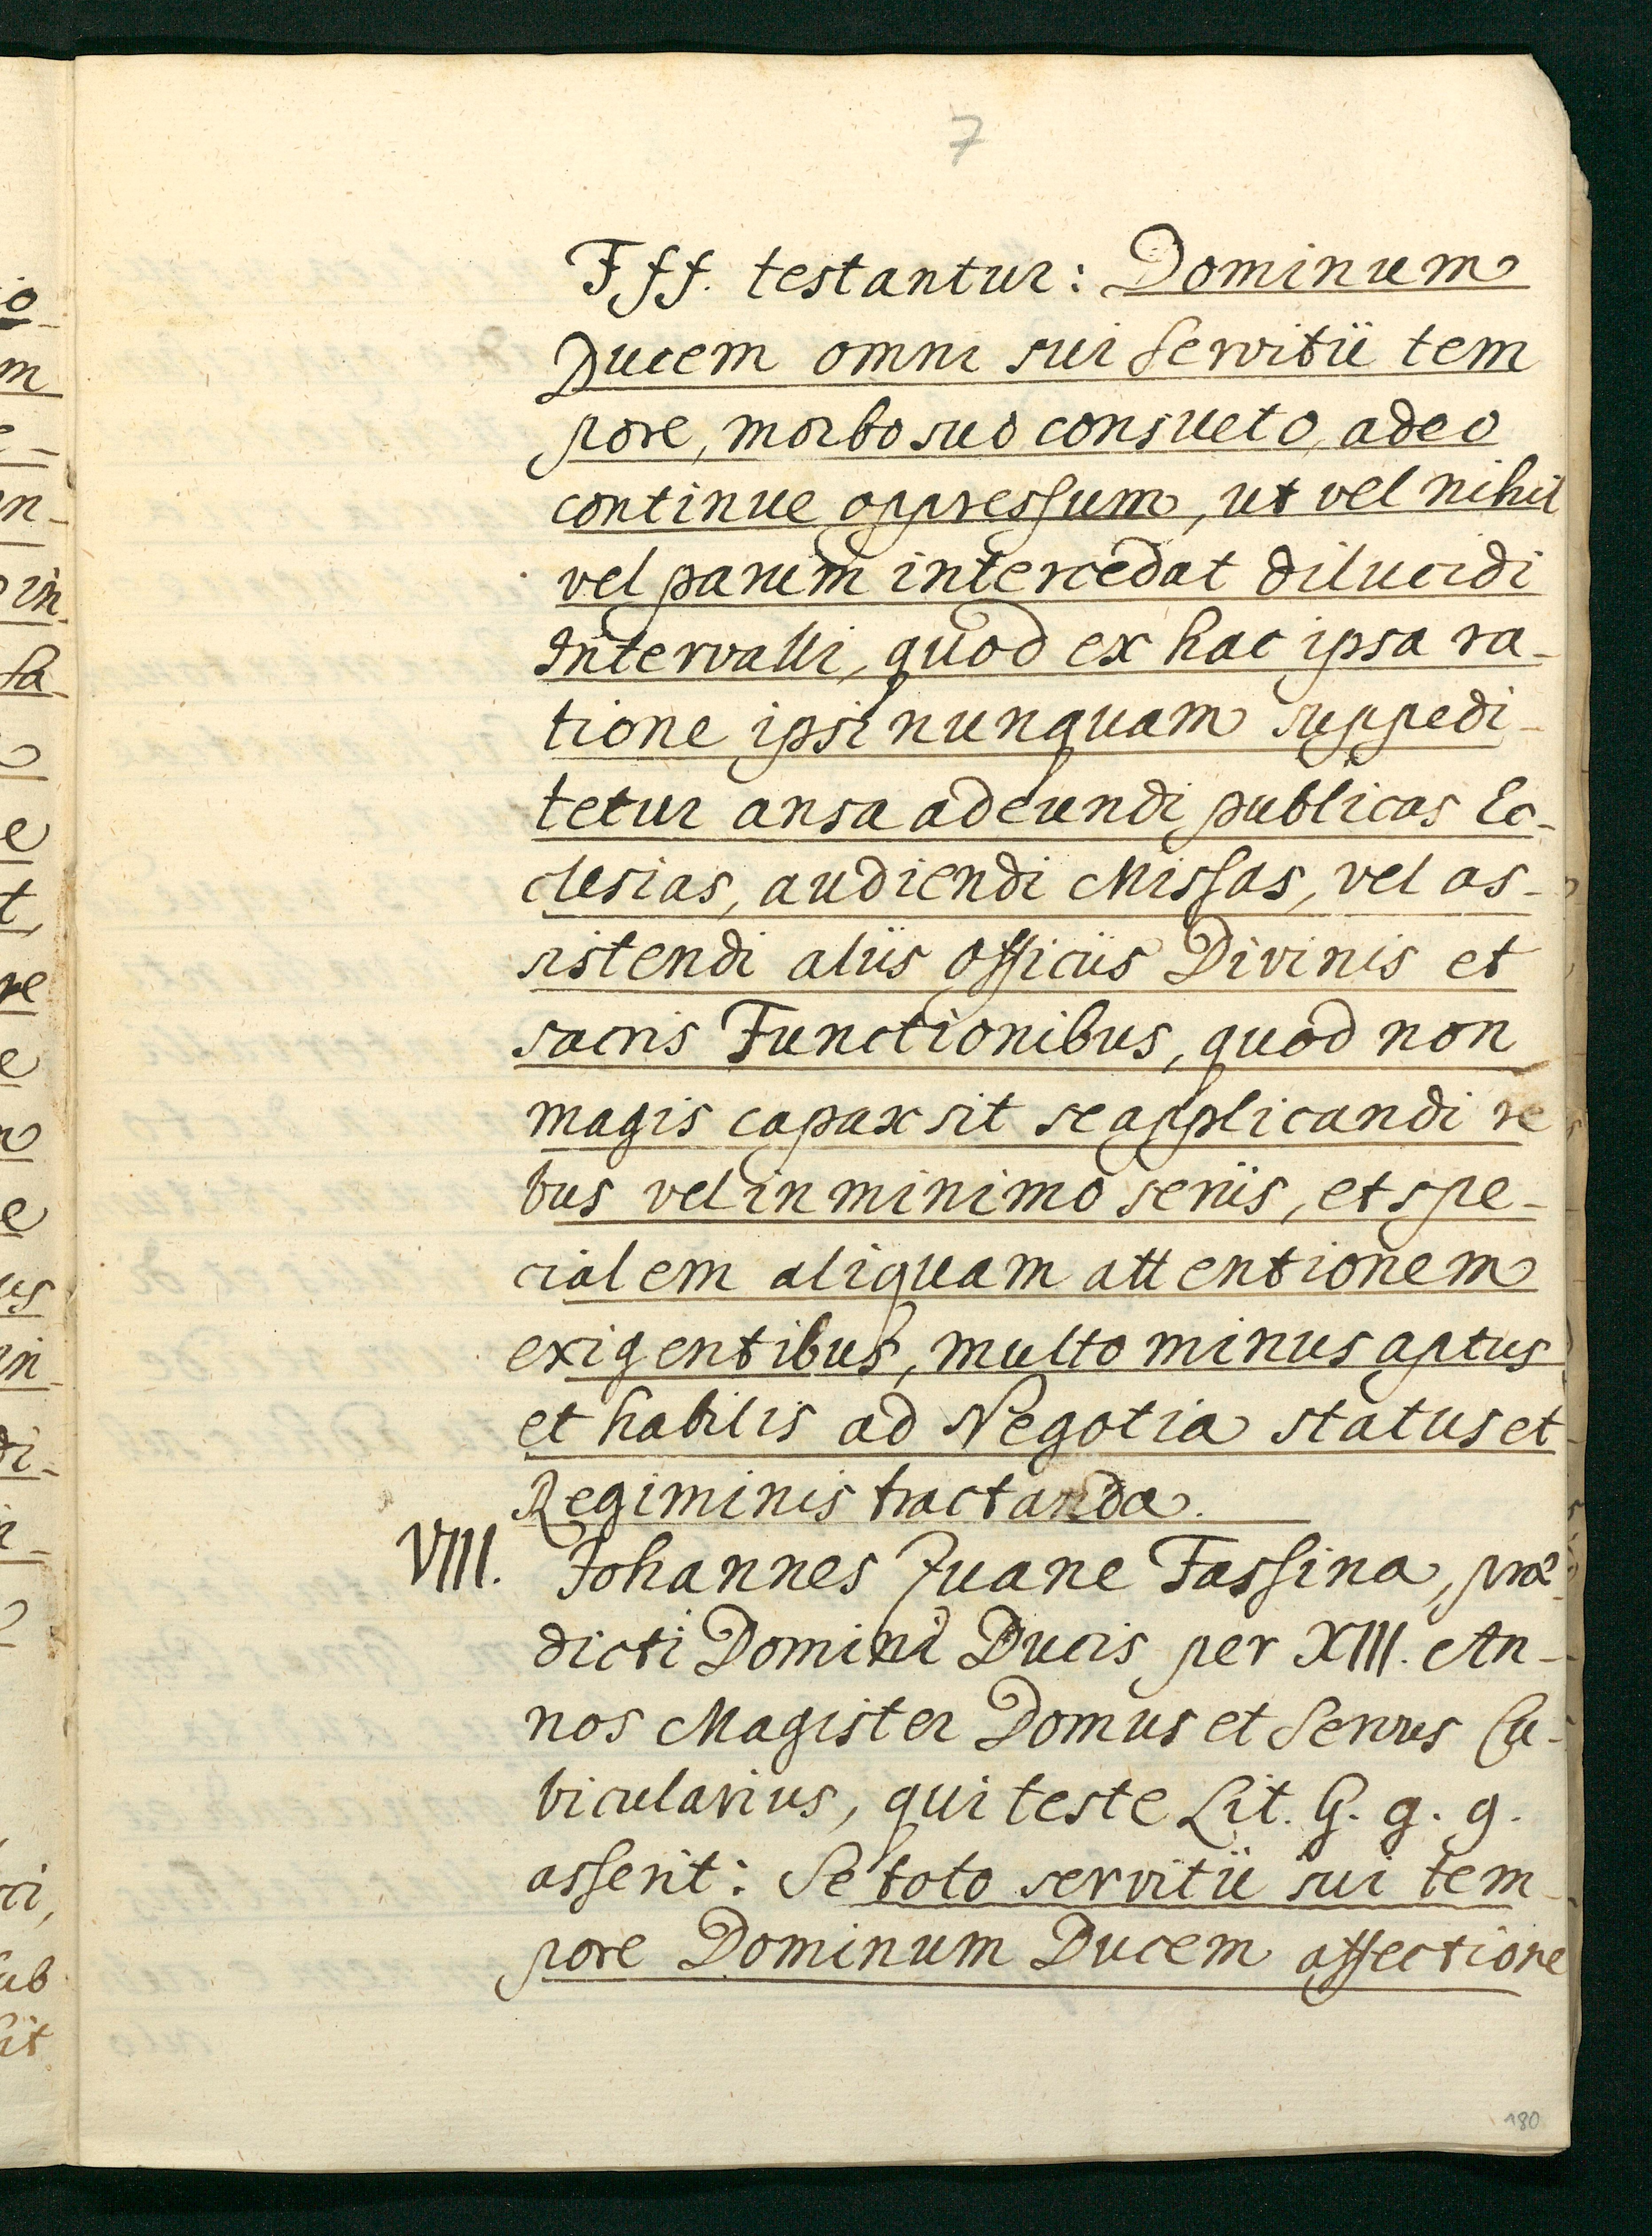 7
Fff. testantur: Dominum
Ducem omni sui Servitii tem
pore, morbo suo consueto, adeo
continue oppressum, ut vel nihil
vel parum intercedat dilucidi
Intervalli, quod ex hac ipsa ra-
tione ipsi nunquam suppedi-
tetur ansa adeundi publicas Ec-
clesias, audiendi Missas, vel as-
sistendi aliis Officiis Divinis et
sacris Functionibus, quod non
magis capax sit se applicandi re
bus vel in minimo seriis, et spe-
cialem aliquam attentionem
exigentibus, multo minus aptus
et habilis ad Negotia status et
Regiminis tractanda.
VIII. Johannes Zuane Fassina, præ-
dicti Domini Ducis per XIII. An-
nos Magister Domus et Servus Cu-
bicularius, qui teste Lit. G. g. g.
asserit: Se toto servitii sui tem-
pore Dominum Ducem affectione
180